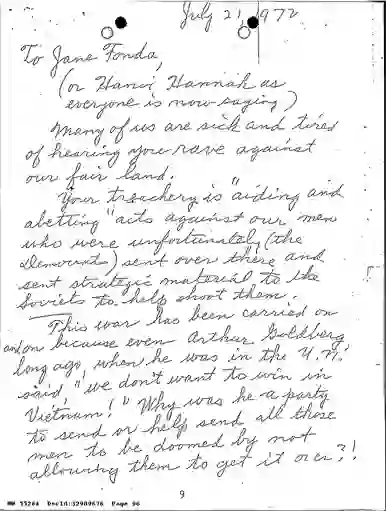 July 21, 1972
To Jane Fonda,
(or Hanoi Hannah as
everyone is now saying)
Many of us are sick and tired
of hearing you rave against
our fair land.
Your treachery is "aiding and
abetting" acts against our men
who were unfortunately (the
Democrats) sent over there and
sent strategic material to the
Soviets to help shoot them.
This war has been carried on
and on because even Arthur Goldberg
long ago, when he was in the U.N.
said, "we don't want to win in
Vietnam!" Why was he a party
to send or help send all these
men to be doomed by not
allowing them to get it over?!
9
HW 55264 DocId:32989676 Page 96